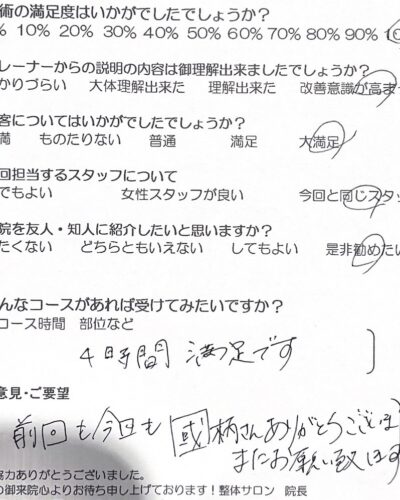 術の満足度はいかがでしたでしょうか?
% 10% 20% 30% 40% 50% 60% 70% 80% 90% 10
レーナーからの説明の内容は御理解出来ましたでしょうか?
かりづらい 大体理解出来た 理解出来た 改善意識が高ま
客についてはいかがでしたでしょうか?
満 ものたりない 普通 満足 大満足
回担当するスタッフについて
でもよい 女性スタッフが良い 今回と同じスタッ
院を友人・知人に紹介したいと思いますか?
たくない どちらともいえない してもよい 是非勧めたい
んなコースがあれば受けてみたいですか?
コース時間 部位など
4時間 満足です
意見・ご要望
前回も今回も 國柄さんありがとうござい
またお願い致します
協力ありがとうございました。
の御来院心よりお待ち申し上げております!整体サロン 院長